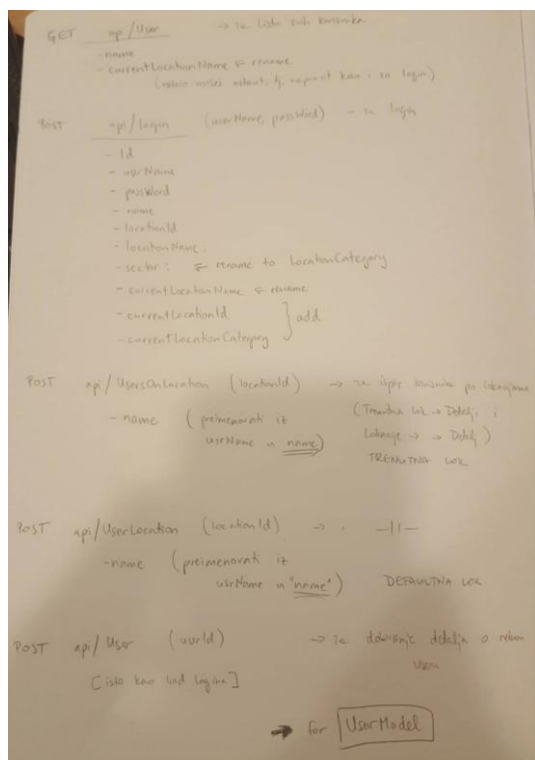 GET api/User → za listu svih korisnika
- name
- currentLocationName ← rename
(ostalo možeš ostavit, tj. napravit kao i za login)
POST api/login (userName, password) - za login
- Id
- usrName
- password
- name
- locationId
- locationName
- sector: ← rename to LocationCategory
- currentLocatonName ← rename
- currentLocationId } add
- currentLocationCategory
POST api/UsersOnLocation (locationId) → za ispis korisnika po lokacijama
- name (preimenovati iz (Trenutna Lok → Detalji i
usrName u name) Lokacije → → Detalj)
TRENUTNA LOK
POST api/UserLocation (locationId) → -||-
- name (preimenovati iz
usrName u "name") DEFAULTNA LOK
POST api/User (usrId) → za dobivanje detalja o
useru
[isto kao kod logina]
→ for UserModel